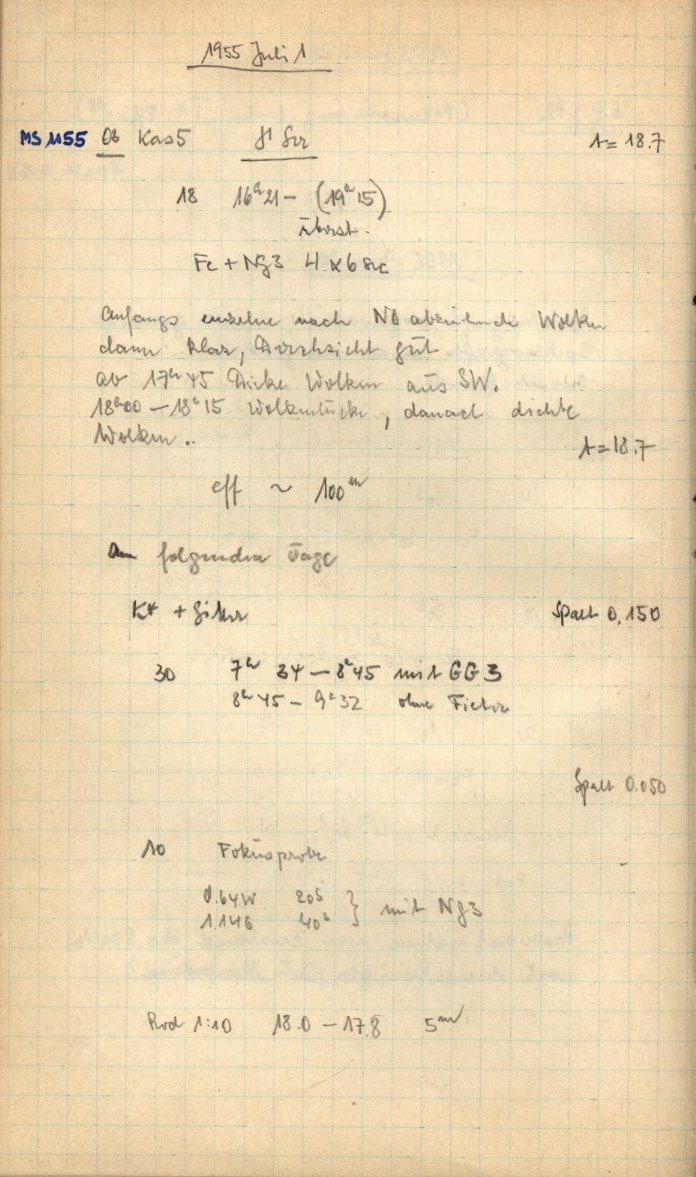 1955 Juli 1
MS 1155 Ob Kas5 Scr t = 18.7
18 16h21 – (19h15)
Überst.
Fe + Ng3 4 x 6 sec
Anfangs einzelne nach NO abziehende Wolken
dann klar, Durchsicht gut
ab 17h45 Dicke Wolken aus SW.
18h00 – 18h15 Wolkenlücke, danach dichte
Wolken..
t = 18.7
eff ~ 100m
Am folgenden Tage
K4 + Gitter Spalt 0.150
30 7h 34 – 8h45 mit GG3
8h45 – 9h32 ohne Filter
Spalt 0.050
10 Fokusprobe
0.64W 20s
1.146 40s } mit Ng3
Rod 1:10 18.0 – 17.8 5m